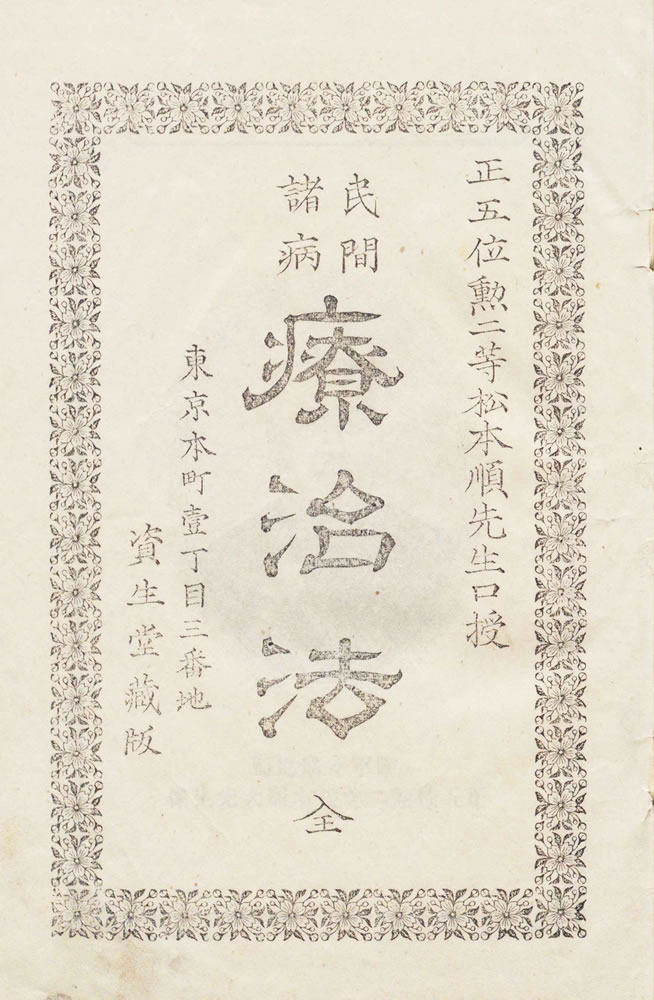 正五位勲二等松本順先生口授
民間
諸病
療治法
全
東京本町壹丁目三番地
資生堂藏版